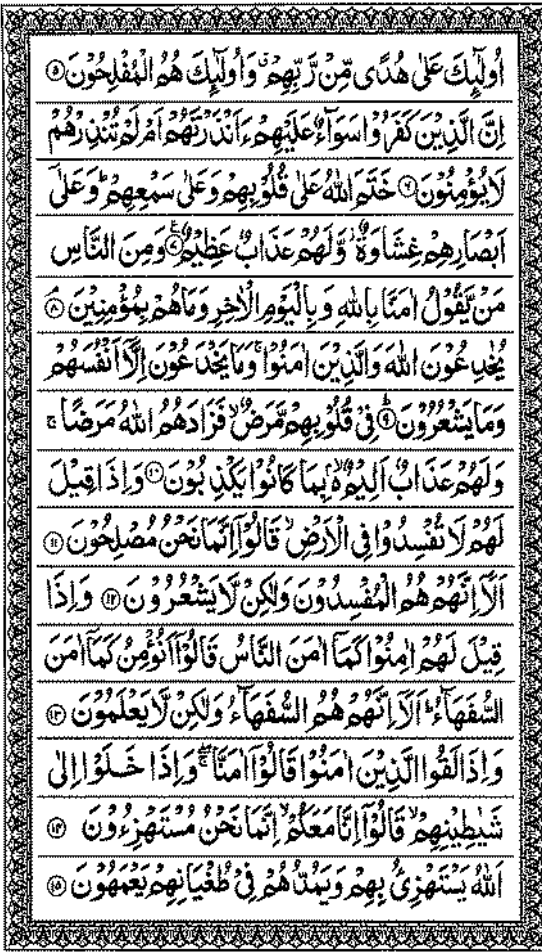 اُولٰٓئِكَ عَلٰى هُدًى مِّنْ رَّبِّهِمْ ۙ وَاُولٰٓئِكَ هُمُ الْمُفْلِحُوْنَ ۝۵
اِنَّ الَّذِيْنَ كَفَرُوْا سَوَآءٌ عَلَيْهِمْ ءَاَنْذَرْتَهُمْ اَمْ لَمْ تُنْذِرْهُمْ
لَا يُؤْمِنُوْنَ ۝۶ خَتَمَ اللّٰهُ عَلٰى قُلُوْبِهِمْ وَعَلٰى سَمْعِهِمْ ؕ وَعَلٰٓى
اَبْصَارِهِمْ غِشَاوَةٌ ۫ وَّلَهُمْ عَذَابٌ عَظِيْمٌ ۝۷ وَمِنَ النَّاسِ
مَنْ يَّقُوْلُ اٰمَنَّا بِاللّٰهِ وَبِالْيَوْمِ الْاٰخِرِ وَمَا هُمْ بِمُؤْمِنِيْنَ ۝۸
يُخٰدِعُوْنَ اللّٰهَ وَالَّذِيْنَ اٰمَنُوْا ۚ وَمَا يَخْدَعُوْنَ اِلَّاۤ اَنْفُسَهُمْ
وَمَا يَشْعُرُوْنَ ۝۹ فِيْ قُلُوْبِهِمْ مَّرَضٌ ۙ فَزَادَهُمُ اللّٰهُ مَرَضًا ۚ
وَلَهُمْ عَذَابٌ اَلِيْمٌۢ ۙ بِمَا كَانُوْا يَكْذِبُوْنَ ۝۱۰ وَاِذَا قِيْلَ
لَهُمْ لَا تُفْسِدُوْا فِى الْاَرْضِ ۙ قَالُوْۤا اِنَّمَا نَحْنُ مُصْلِحُوْنَ ۝۱۱
اَلَاۤ اِنَّهُمْ هُمُ الْمُفْسِدُوْنَ وَلٰكِنْ لَّا يَشْعُرُوْنَ ۝۱۲ وَاِذَا
قِيْلَ لَهُمْ اٰمِنُوْا كَمَاۤ اٰمَنَ النَّاسُ قَالُوْۤا اَنُؤْمِنُ كَمَاۤ اٰمَنَ
السُّفَهَآءُ ؕ اَلَاۤ اِنَّهُمْ هُمُ السُّفَهَآءُ وَلٰكِنْ لَّا يَعْلَمُوْنَ ۝۱۳
وَاِذَا لَقُوا الَّذِيْنَ اٰمَنُوْا قَالُوْۤا اٰمَنَّا ۖۚ وَاِذَا خَلَوْا اِلٰى
شَيٰطِيْنِهِمْ ۙ قَالُوْۤا اِنَّا مَعَكُمْ ۙ اِنَّمَا نَحْنُ مُسْتَهْزِءُوْنَ ۝۱۴
اَللّٰهُ يَسْتَهْزِئُ بِهِمْ وَيَمُدُّهُمْ فِيْ طُغْيَانِهِمْ يَعْمَهُوْنَ ۝۱۵